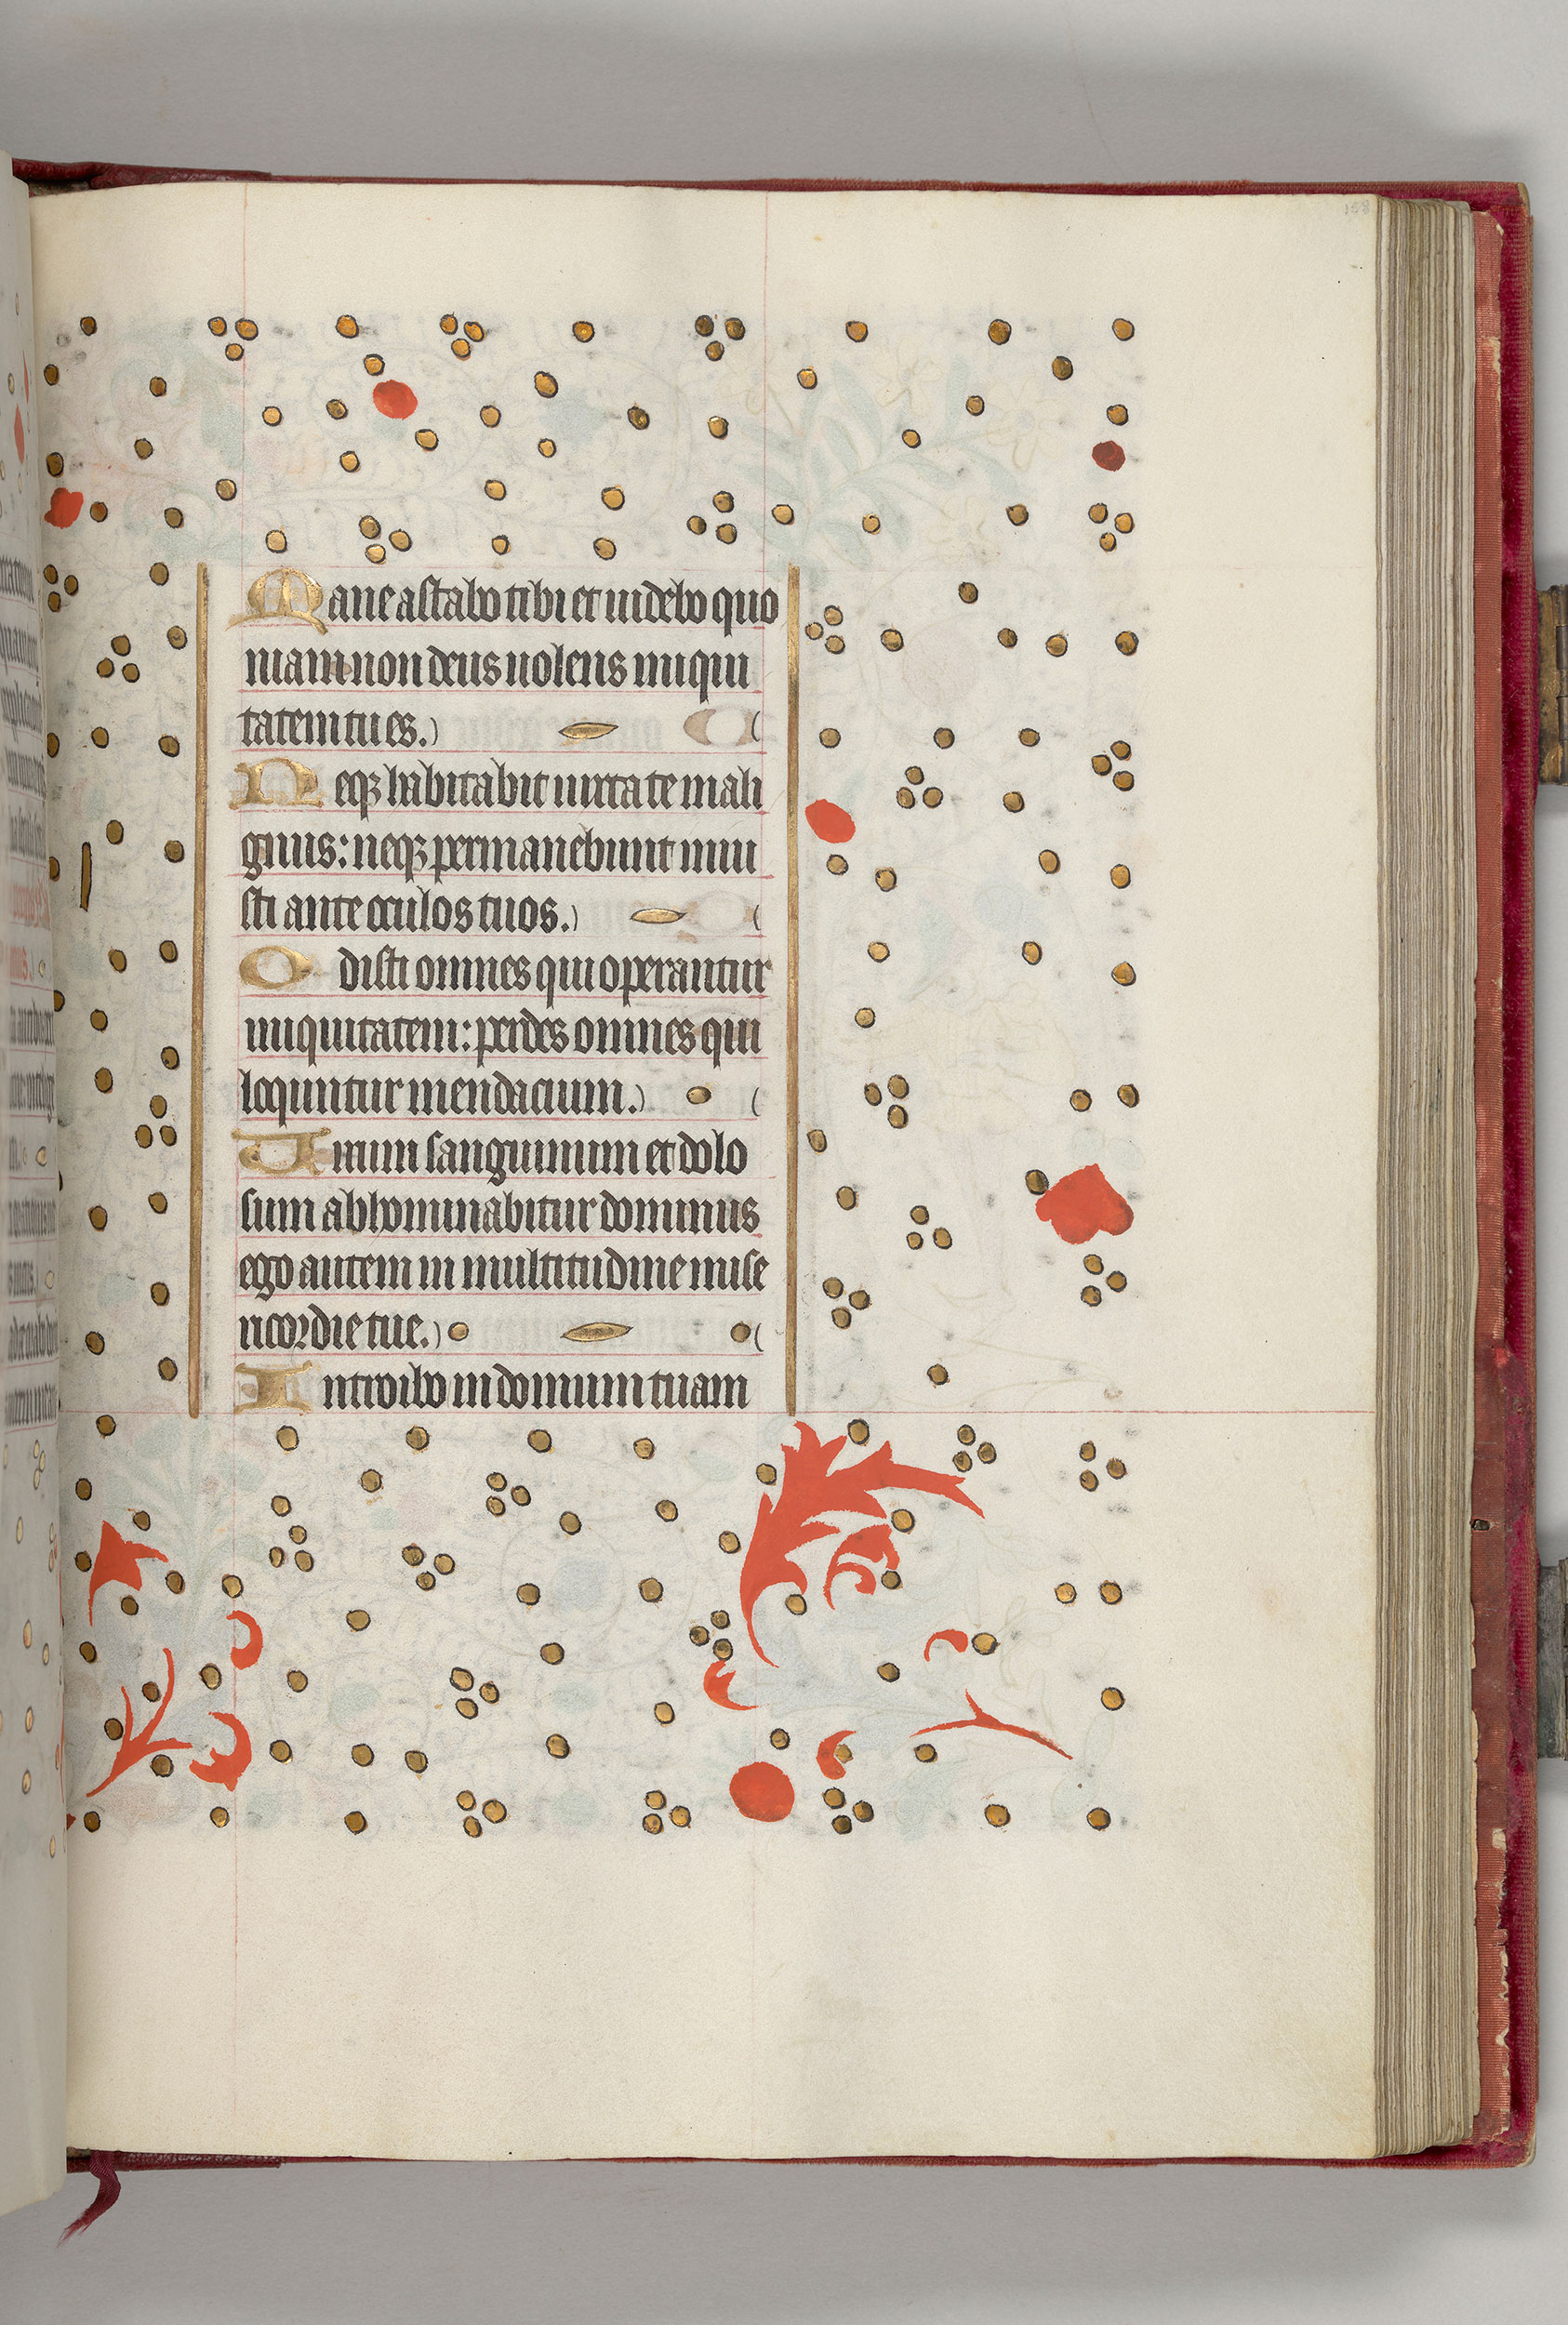 Mane astabo tibi et uidebo quo
niam non deus uolens iniqui
tatem tu es.
Neqz habitabit iuxta te mali
gnus: neqz permanebunt iniu
sti ante oculos tuos.
Odisti omnes qui operantur
iniquitatem: perdes omnes qui
loquuntur mendacium.
Uirum sanguinum et dolo
sum abhominabitur dominus
ego autem in multitudine mise
ricordie tue.
Introibo in domum tuam